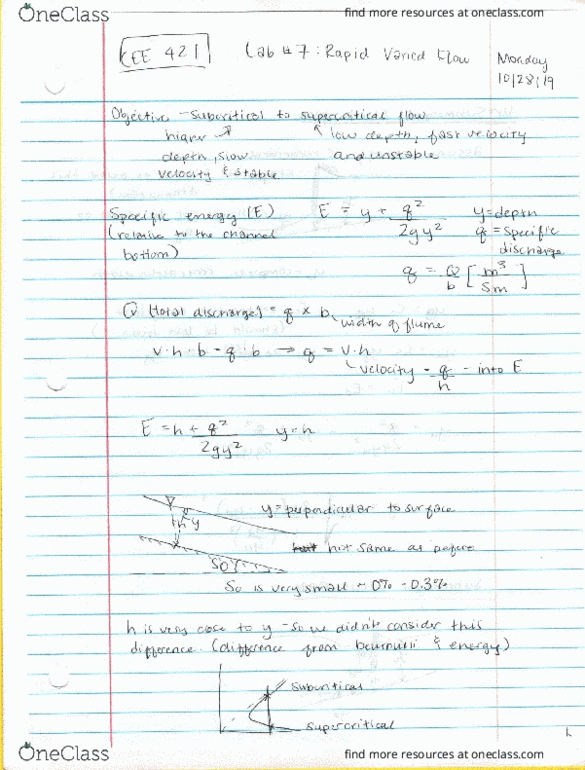 OneClass
find more resources at oneclass.com
CEE 421
Lab #7: Rapid Varied Flow
Monday
10/28/19
Objective - Subcritical to supercritical flow
higher
depth, slow
velocity & stable
low depth, fast velocity
and unstable
Specific energy (E)
(relative to the channel
bottom)
E = y + q²/2gy²
y = depth
q = specific
discharge
q = Q/b [m³/sm]
Q (total discharge) = q × b
width of flume
v·h·b = q·b → q = v·h
velocity = q/h - into E
E = h + q²/2gy² y=h
h y
So
y = perpendicular to surface
not same as before
So is very small ~ 0% - 0.3%
h is very close to y - so we didn't consider this
difference (difference from bournulli & energy)
Subcritical
supercritical
OneClass
find more resources at oneclass.com